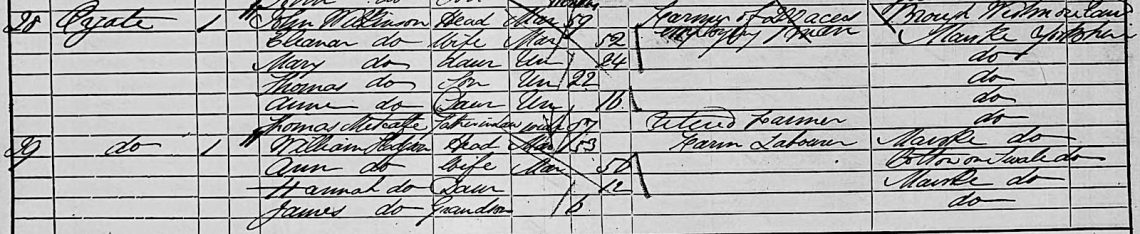 28 1 John Wilkinson Head Mar 59 Farmer of 200 acres Brough Westmorland
Eleanor do Wife Mar 52 employing man Marske Yorkshire
Mary do Daur Un 24 do
Thomas do Son Un 22 do
Anne do Daur Un 16 do
Thomas Metcalfe Father in law 87 Retired Farmer do
29 do 1 William Head Mar 53 Farm Labourer Marske do
Ann do Wife Mar 50 do
Hannah do Daur 12 Marske do
James do Grandson 6 do